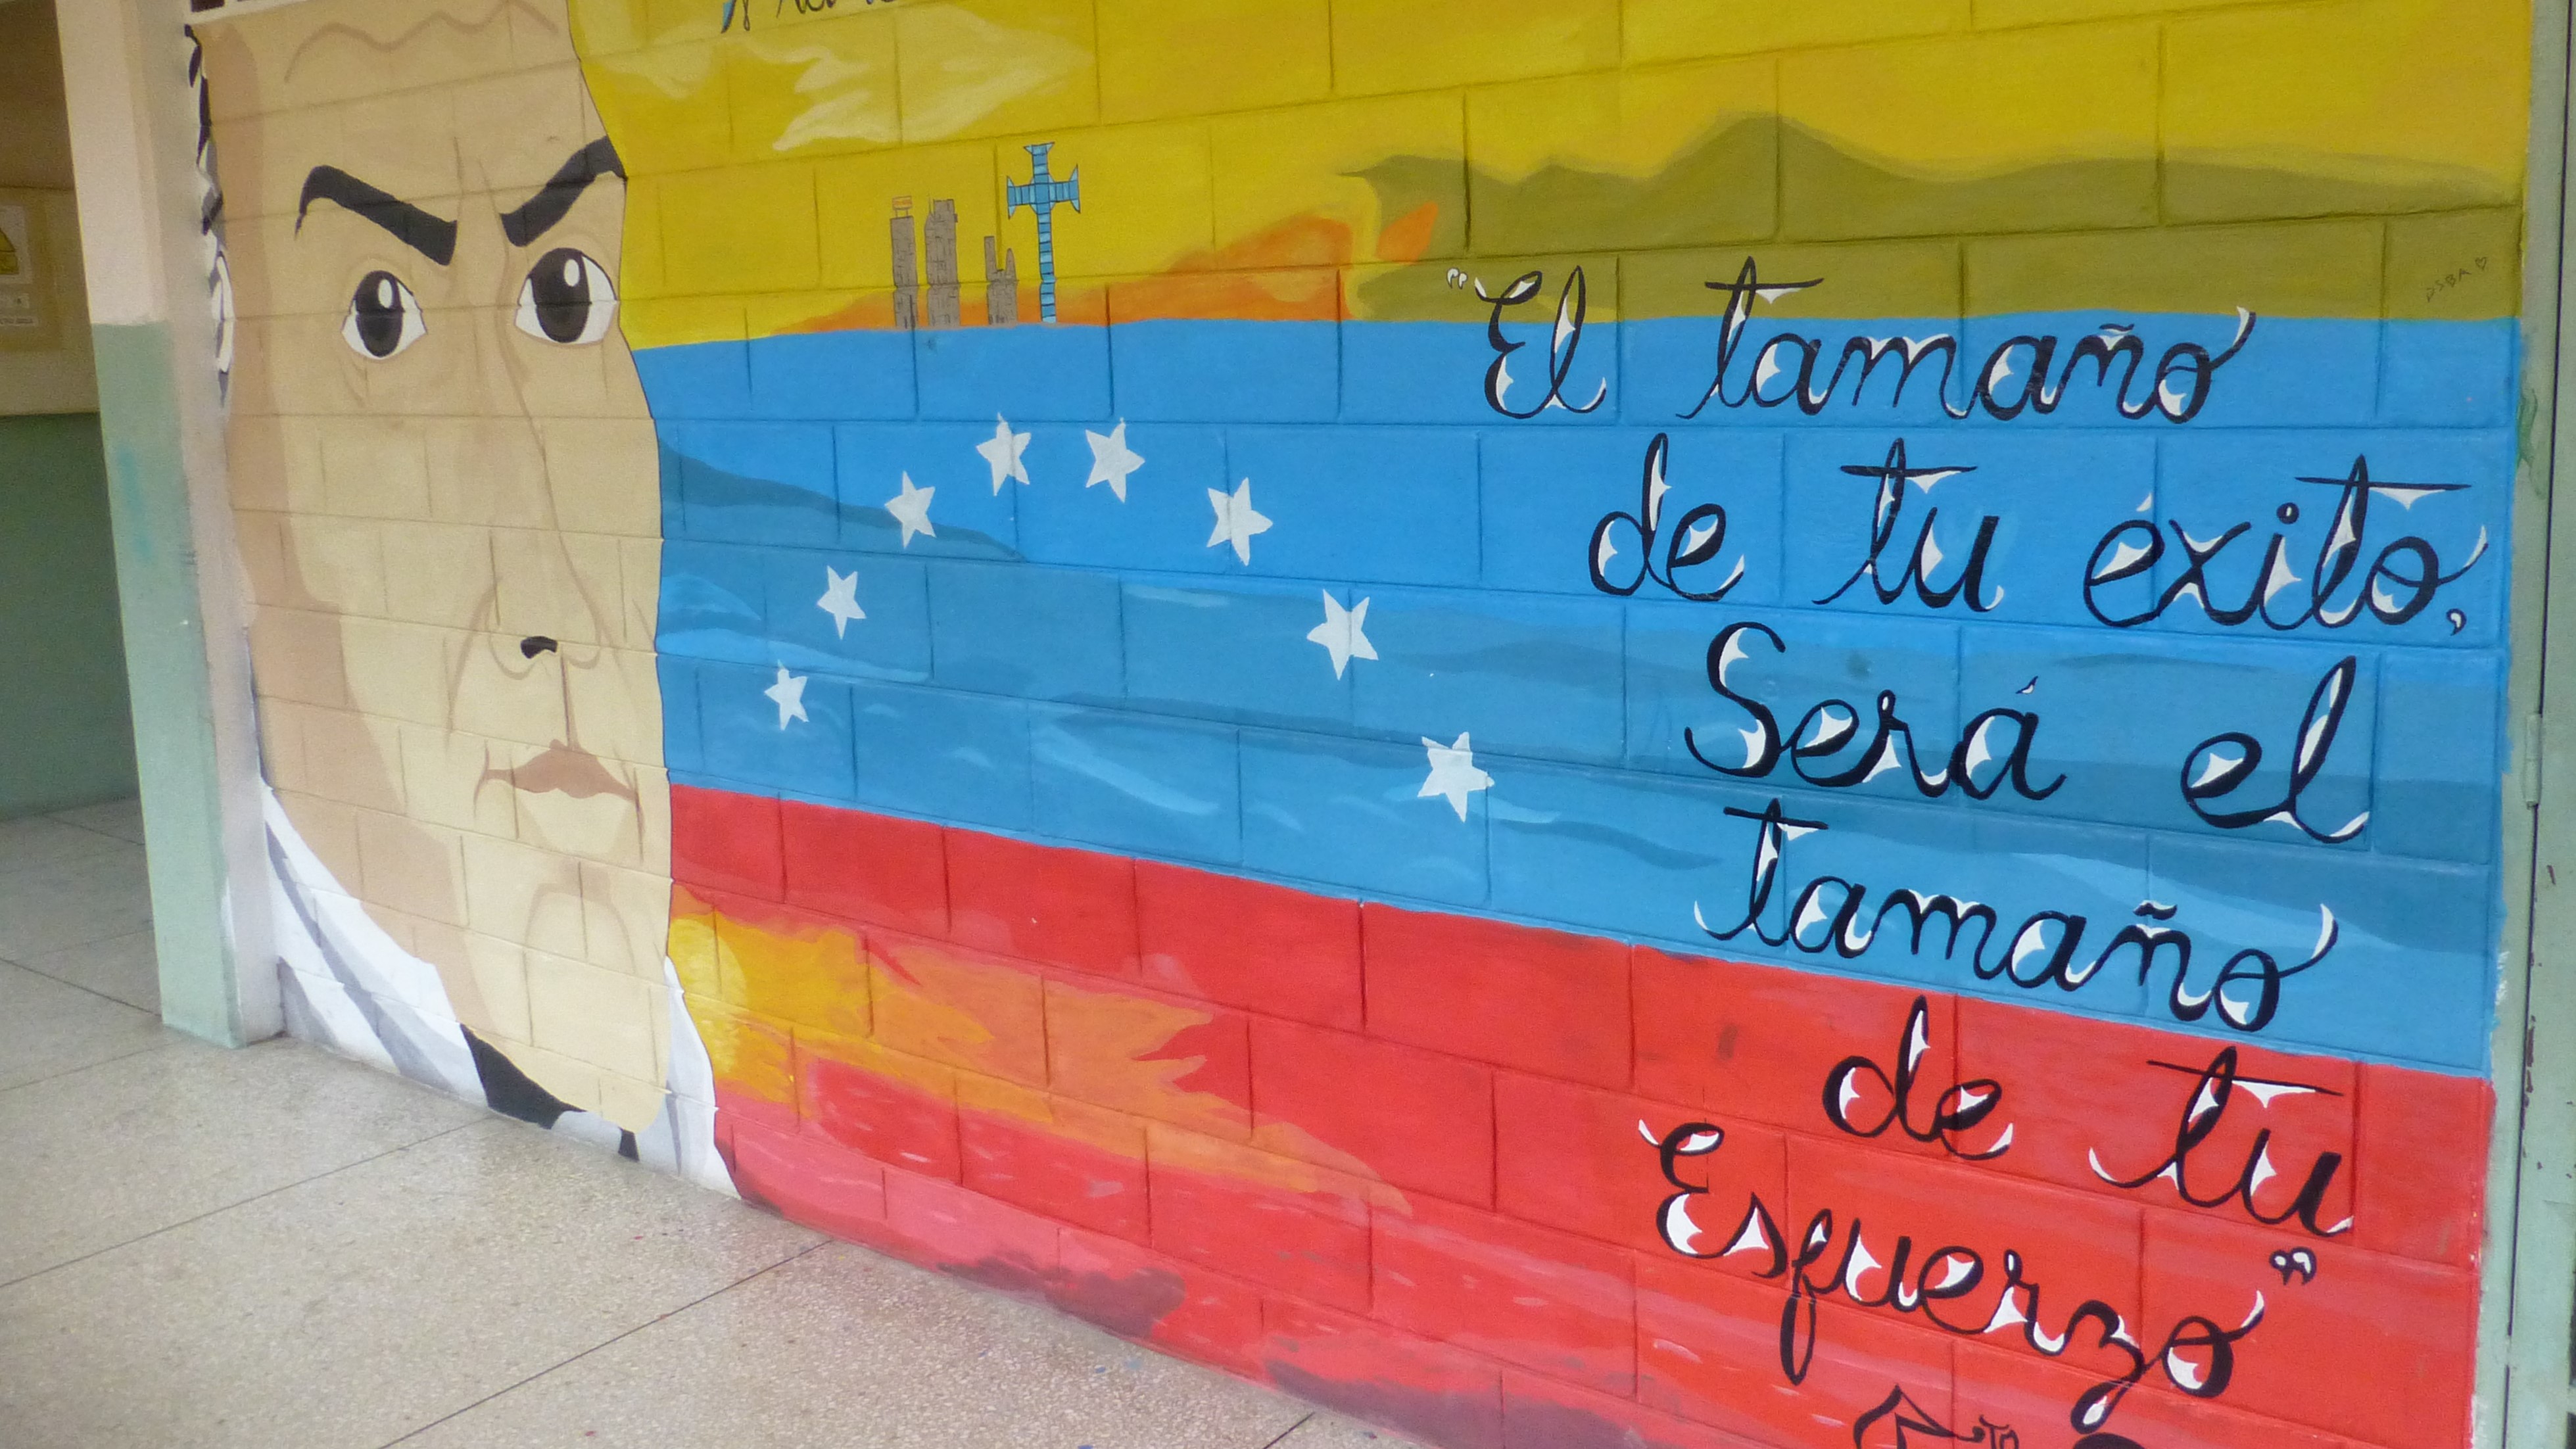 "El tamaño
de tu éxito,
Será el
tamaño
de tu
Esfuerzo"